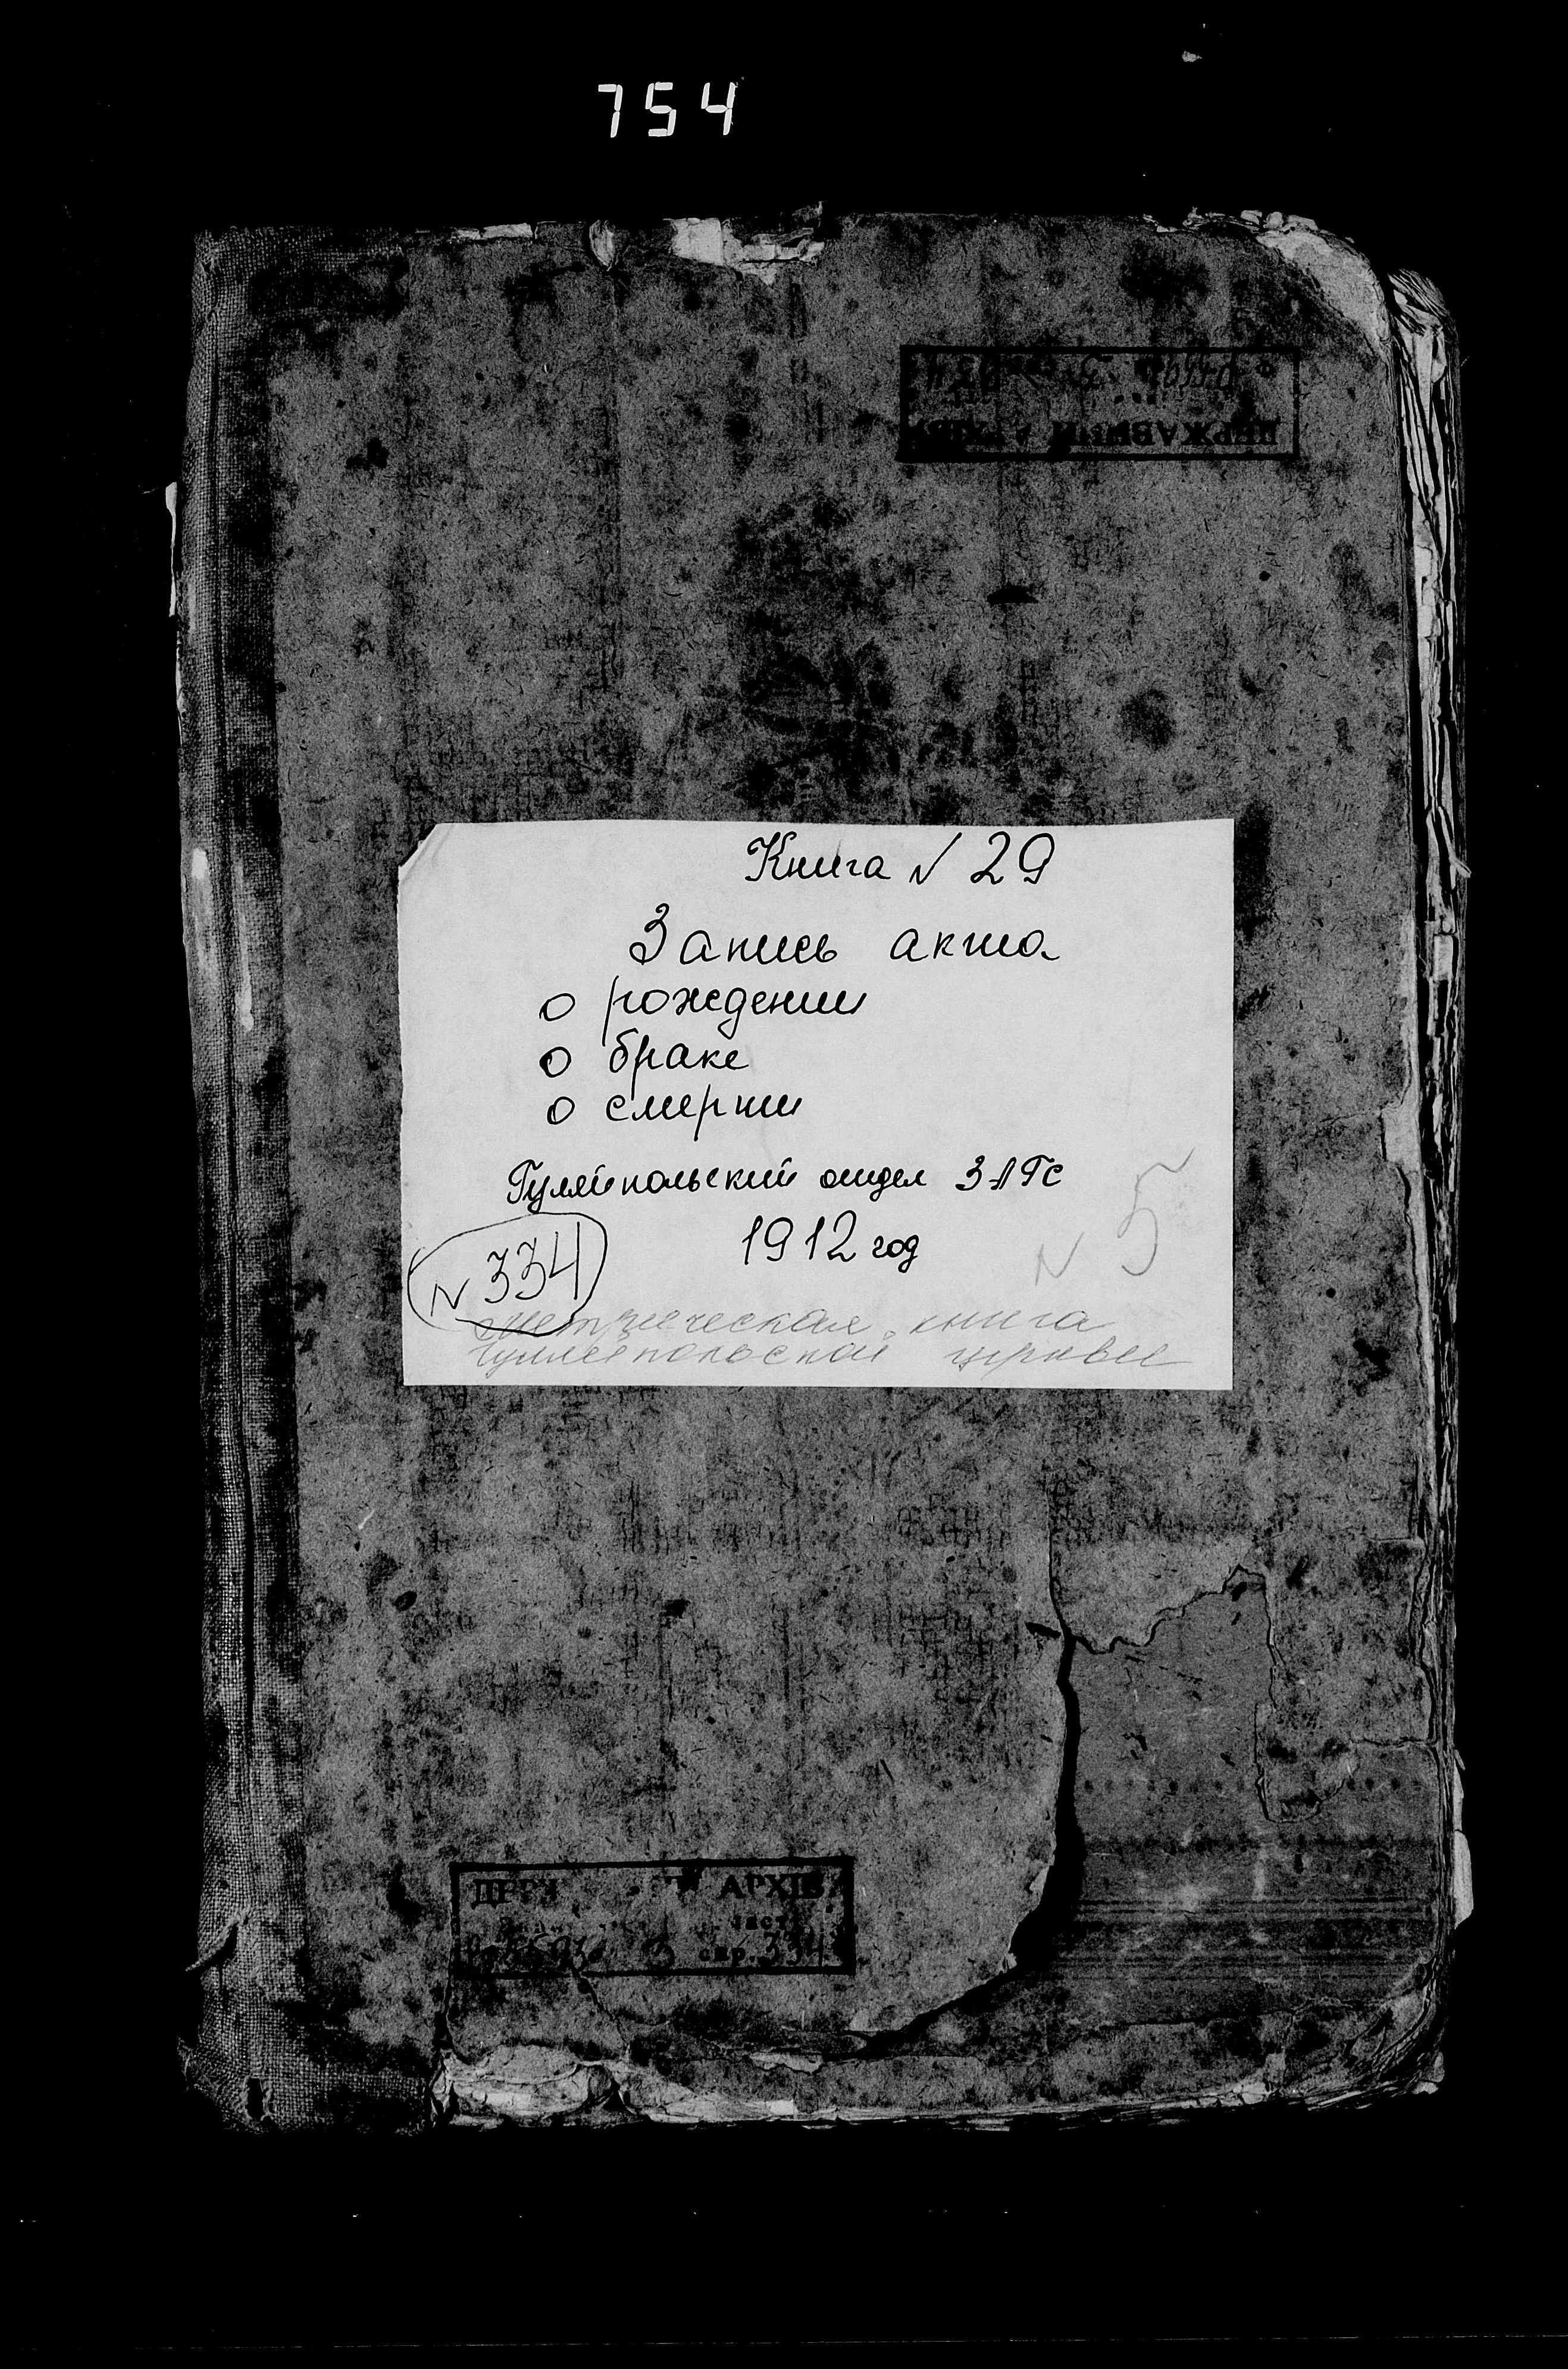 754
ДЕРЖАВНИЙ АРХІВ
Книга № 29
Запись акта
о рождении
о браке
о смерти
Гуляйпольский отдел ЗАГС
1912 год
№ 5
№ 334
метрическая книга
Гуляйпольской церкви
АРХІВ
спр. 334